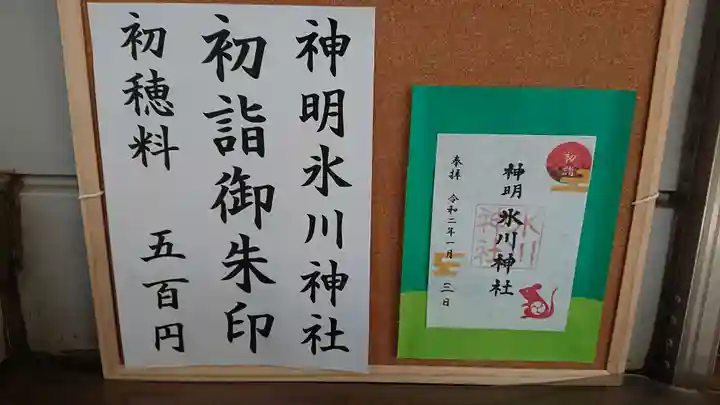 神明氷川神社
初詣御朱印
初穂料 五百円
初詣
神明氷川神社
氷川神社
奉拝 令和二年一月 三日